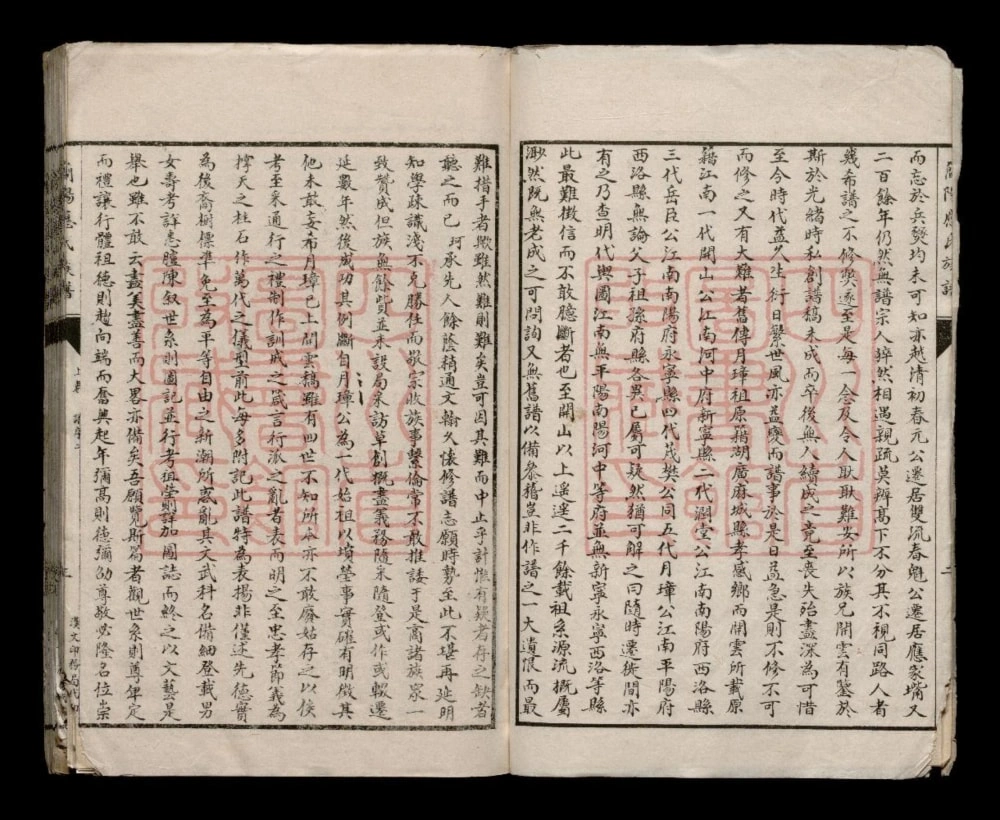 簡陽應氏族譜
而忘於兵燹均未可知亦越清初春元公遷居雙流春魁公遷居應家壩又
二百餘年仍然無譜宗人猝然相遇親疏莫辨高下不分其不視同路人者
幾希譜之不修獘遂至是每一念及令人耿耿難安所以族兄開雲有鑒於
斯於光緒時私創譜稿未成而卒後無人續成之竟至喪失殆盡深為可惜
至今時代益久生衍日繁世風亦益變而譜事於是日益急是則不修不可
而修之又有大難者舊傳月璋祖原籍湖廣麻城縣孝感鄉而開雲所載原
籍江南一代開山公江南河中府新寧縣二代潤堂公江南南陽府西洛縣
三代岳臣公江南南陽府永寧縣四代茂樊公同五代月璋公江南平陽府
西洛縣無論父子祖孫府縣各異已屬可疑然猶可解之曰隨時遷徙間亦
有之乃查明代輿圖江南無平陽南陽河中等府並無新寧永寧西洛等縣
此最難徵信而不敢臆斷者也至開山以上遥遥二千餘載祖系源流概屬
渺然既無老成之可問詢又無舊譜以備叅稽豈非作譜之一大遺恨而最
難措手者歟雖然難則難矣豈可因其難而中止乎計惟有疑者存之缺者
聽之而已珂承先人餘蔭稍通文翰久懷修譜志願時勢至此不堪再延明
知學疎識淺不克勝任而敬宗收族事繫倫常不敢推諉于是商諸族衆一
致贊成但族無餘貲並未設局采訪草創概盡義務隨采隨登或作或輟遷
延數年然後成功其例斷自月璋公為一代始祖以墳塋事實確有明徵其
他未敢妄布月璋已上開雲稿雖有四世不知所本亦不敢廢姑存之以俟
考至采通行之禮制作訓戒之箴言行派之亂者表而明之至忠孝節義為
撑天之柱石作萬代之儀型前此每多附記此譜特為表揚非僅述先德實
為後裔樹標準免至為平等自由之新潮所惑亂其文武科名備細登載男
女壽考詳志臚陳叙世系則圖記並行考祖塋則詳加圖誌而終之以文藝是
舉也雖不敢云盡美盡善而大畧亦備矣吾願覽斯篇者觀世系則尊卑定
而禮讓行體祖德則趨向端而奮興起年彌高則德彌劭尊敬必隆名位崇
簡陽應氏族譜
上卷